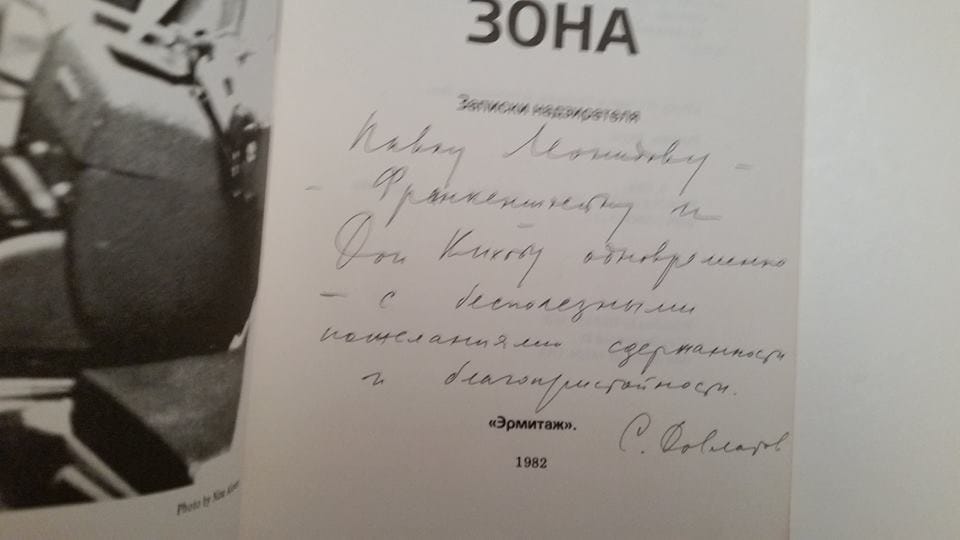 ЗОНА
Записки надзирателя
Павлу Леонидову –
– Франкенштейну и
Дон Кихоту одновременно
– с бесполезными
пожеланиями сдержанности
и благопристойности.
«Эрмитаж».
С. Довлатов
1982
Photo by Nina